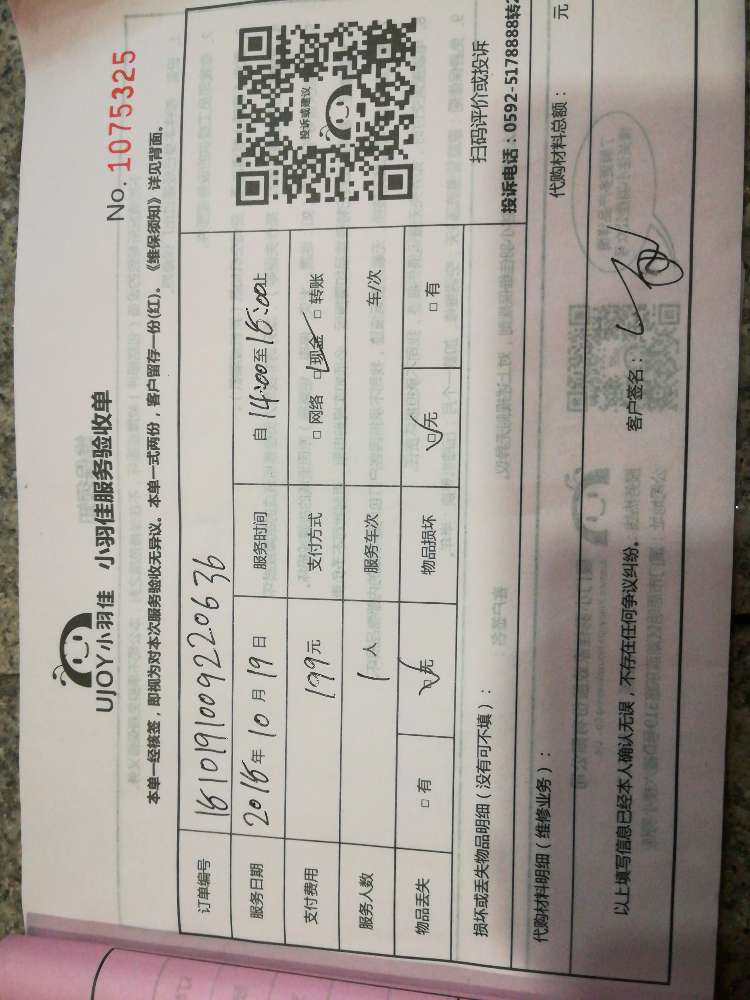 No. 1075325
UJOY小羽佳 小羽佳服务验收单
本单一经核签，即视为对本次服务验收无异议。本单一式两份，客户留存一份(红)。《维保须知》详见背面。
订单编号 1810191009220636
服务日期 2018年 10 月 19 日 服务时间 自 14:00 至 18:00 止
支付费用 199 元 支付方式 □ 网络 □ 现金 □ 转账
服务人数 1 人 服务车次 车/次
物品丢失 □ 有 □ 无 物品损坏 □ 无 □ 有
投诉或建议
损坏或丢失物品明细（没有可不填）：
扫码评价或投诉
投诉电话：0592-5178888转2
代购材料明细（维修业务）： 代购材料总额： 元
以上填写信息已经本人确认无误，不存在任何争议纠纷。 客户签名：